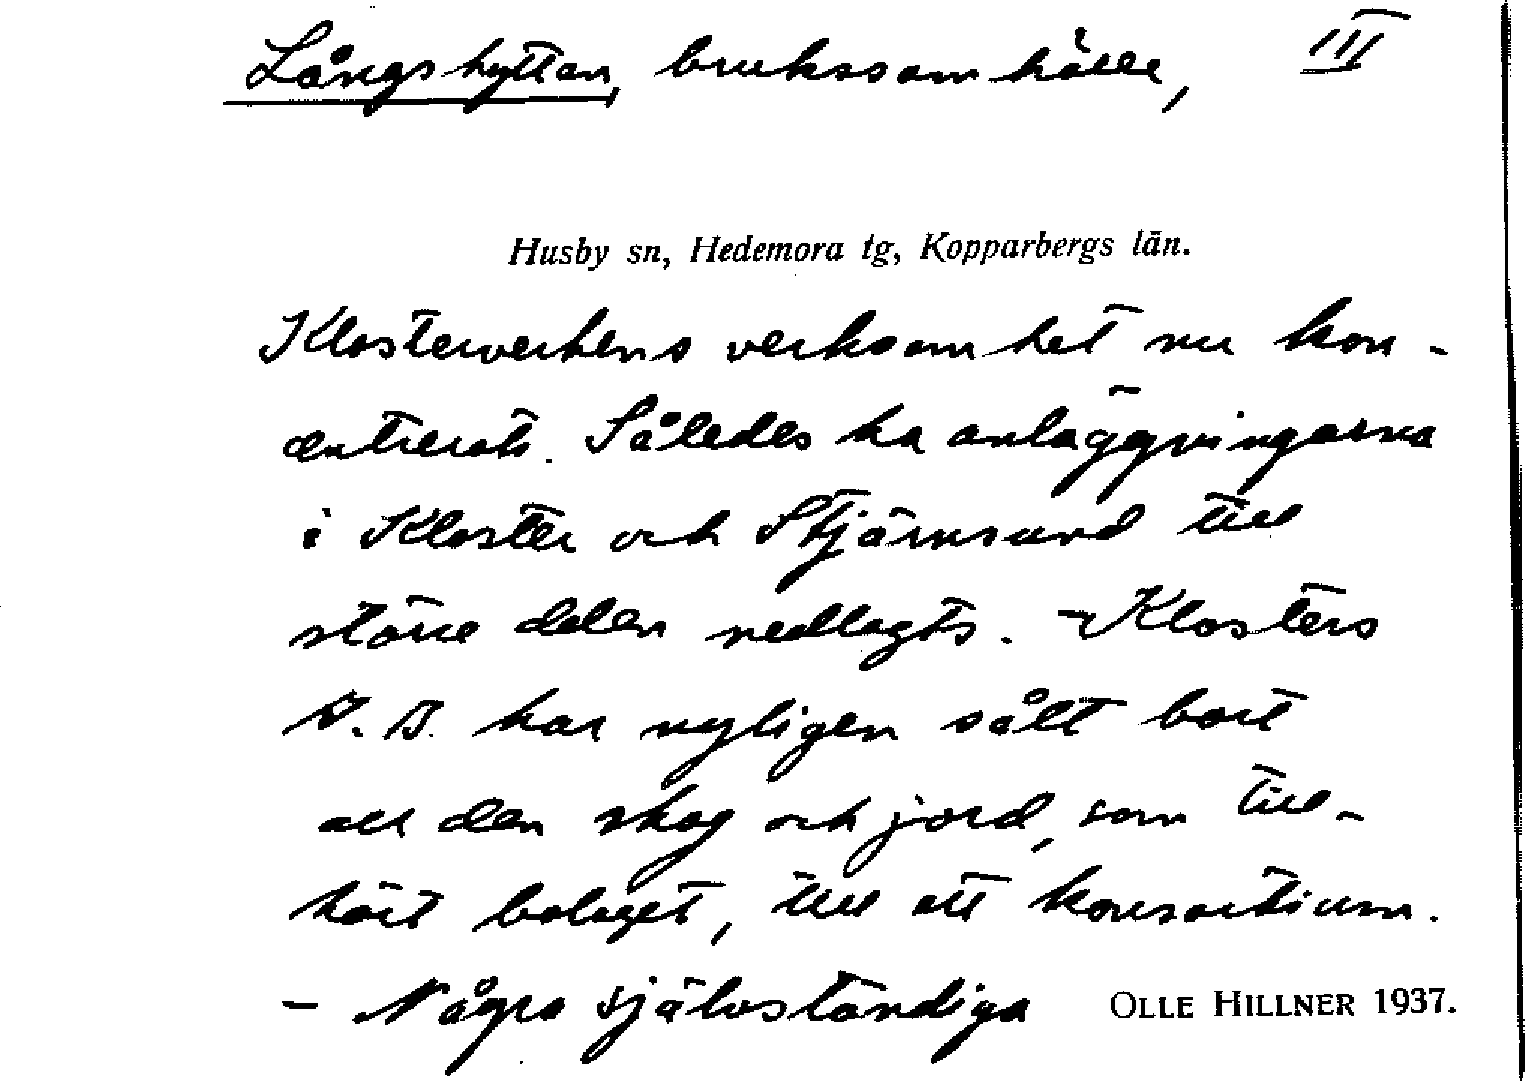 Långshyttan, brukssamhälle, III
Husby sn, Hedemora tg, Kopparbergs län.
Klosterverkens verksamhet nu kon-
centrerats. Således ha anläggningarna
i Kloster och Stjärnsund till
större delen nedlagts. - Klosters
A. B. har nyligen sålt bort
all den skog och jord, som till-
hört bolaget, till ett konsortium.
- Några självständiga OLLE HILLNER 1937.